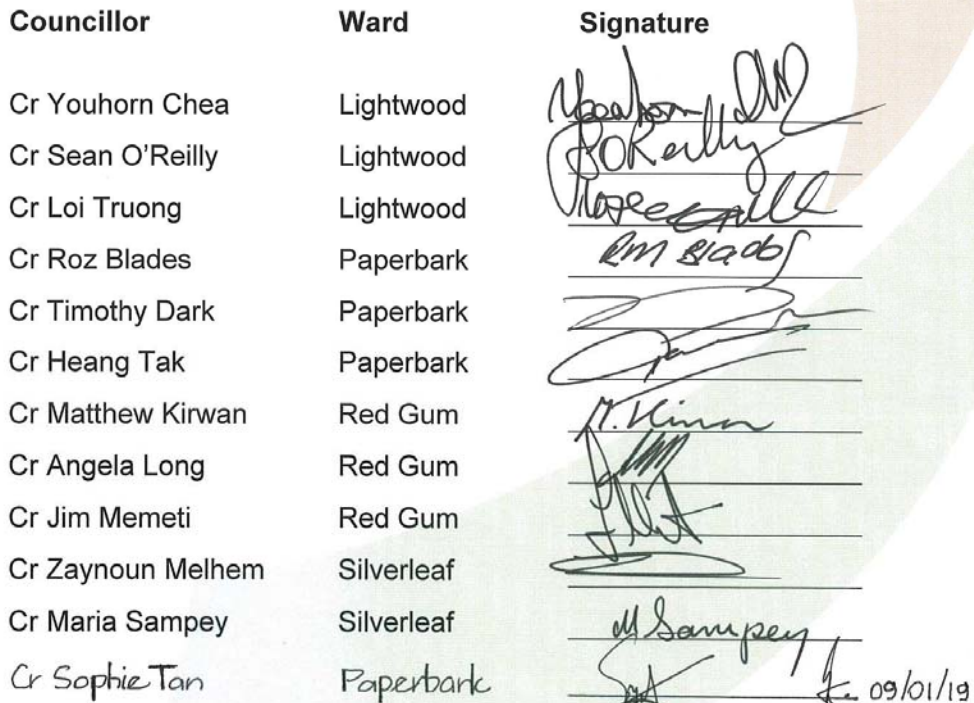 Councillor Ward Signature
Cr Youhorn Chea Lightwood
Cr Sean O'Reilly Lightwood SOReilly
Cr Loi Truong Lightwood
Cr Roz Blades Paperbark RM Blades
Cr Timothy Dark Paperbark
Cr Heang Tak Paperbark
Cr Matthew Kirwan Red Gum
Cr Angela Long Red Gum
Cr Jim Memeti Red Gum
Cr Zaynoun Melhem Silverleaf
Cr Maria Sampey Silverleaf M Sampey
Cr Sophie Tan Paperbark 09/01/19